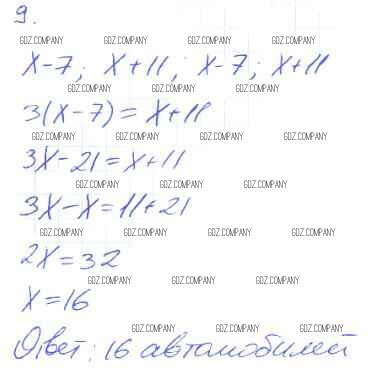 9.
GDZ.COMPANY GDZ.COMPANY GDZ.COMPANY
x-7; x+11; x-7; x+11
GDZ.COMPANY GDZ.COMPANY GDZ.COMPANY
3(x-7)=x+11
GDZ.COMPANY GDZ.COMPANY GDZ.COMPANY
3x-21=x+11
GDZ.COMPANY GDZ.COMPANY GDZ.COMPANY
3x-x=11+21
GDZ.COMPANY GDZ.COMPANY GDZ.COMPANY
2x=32
GDZ.COMPANY GDZ.COMPANY GDZ.COMPANY
x=16
GDZ.COMPANY GDZ.COMPANY
Ответ: 16 автомобилей
GDZ.COMPANY GDZ.COMPANY GDZ.COMPANY